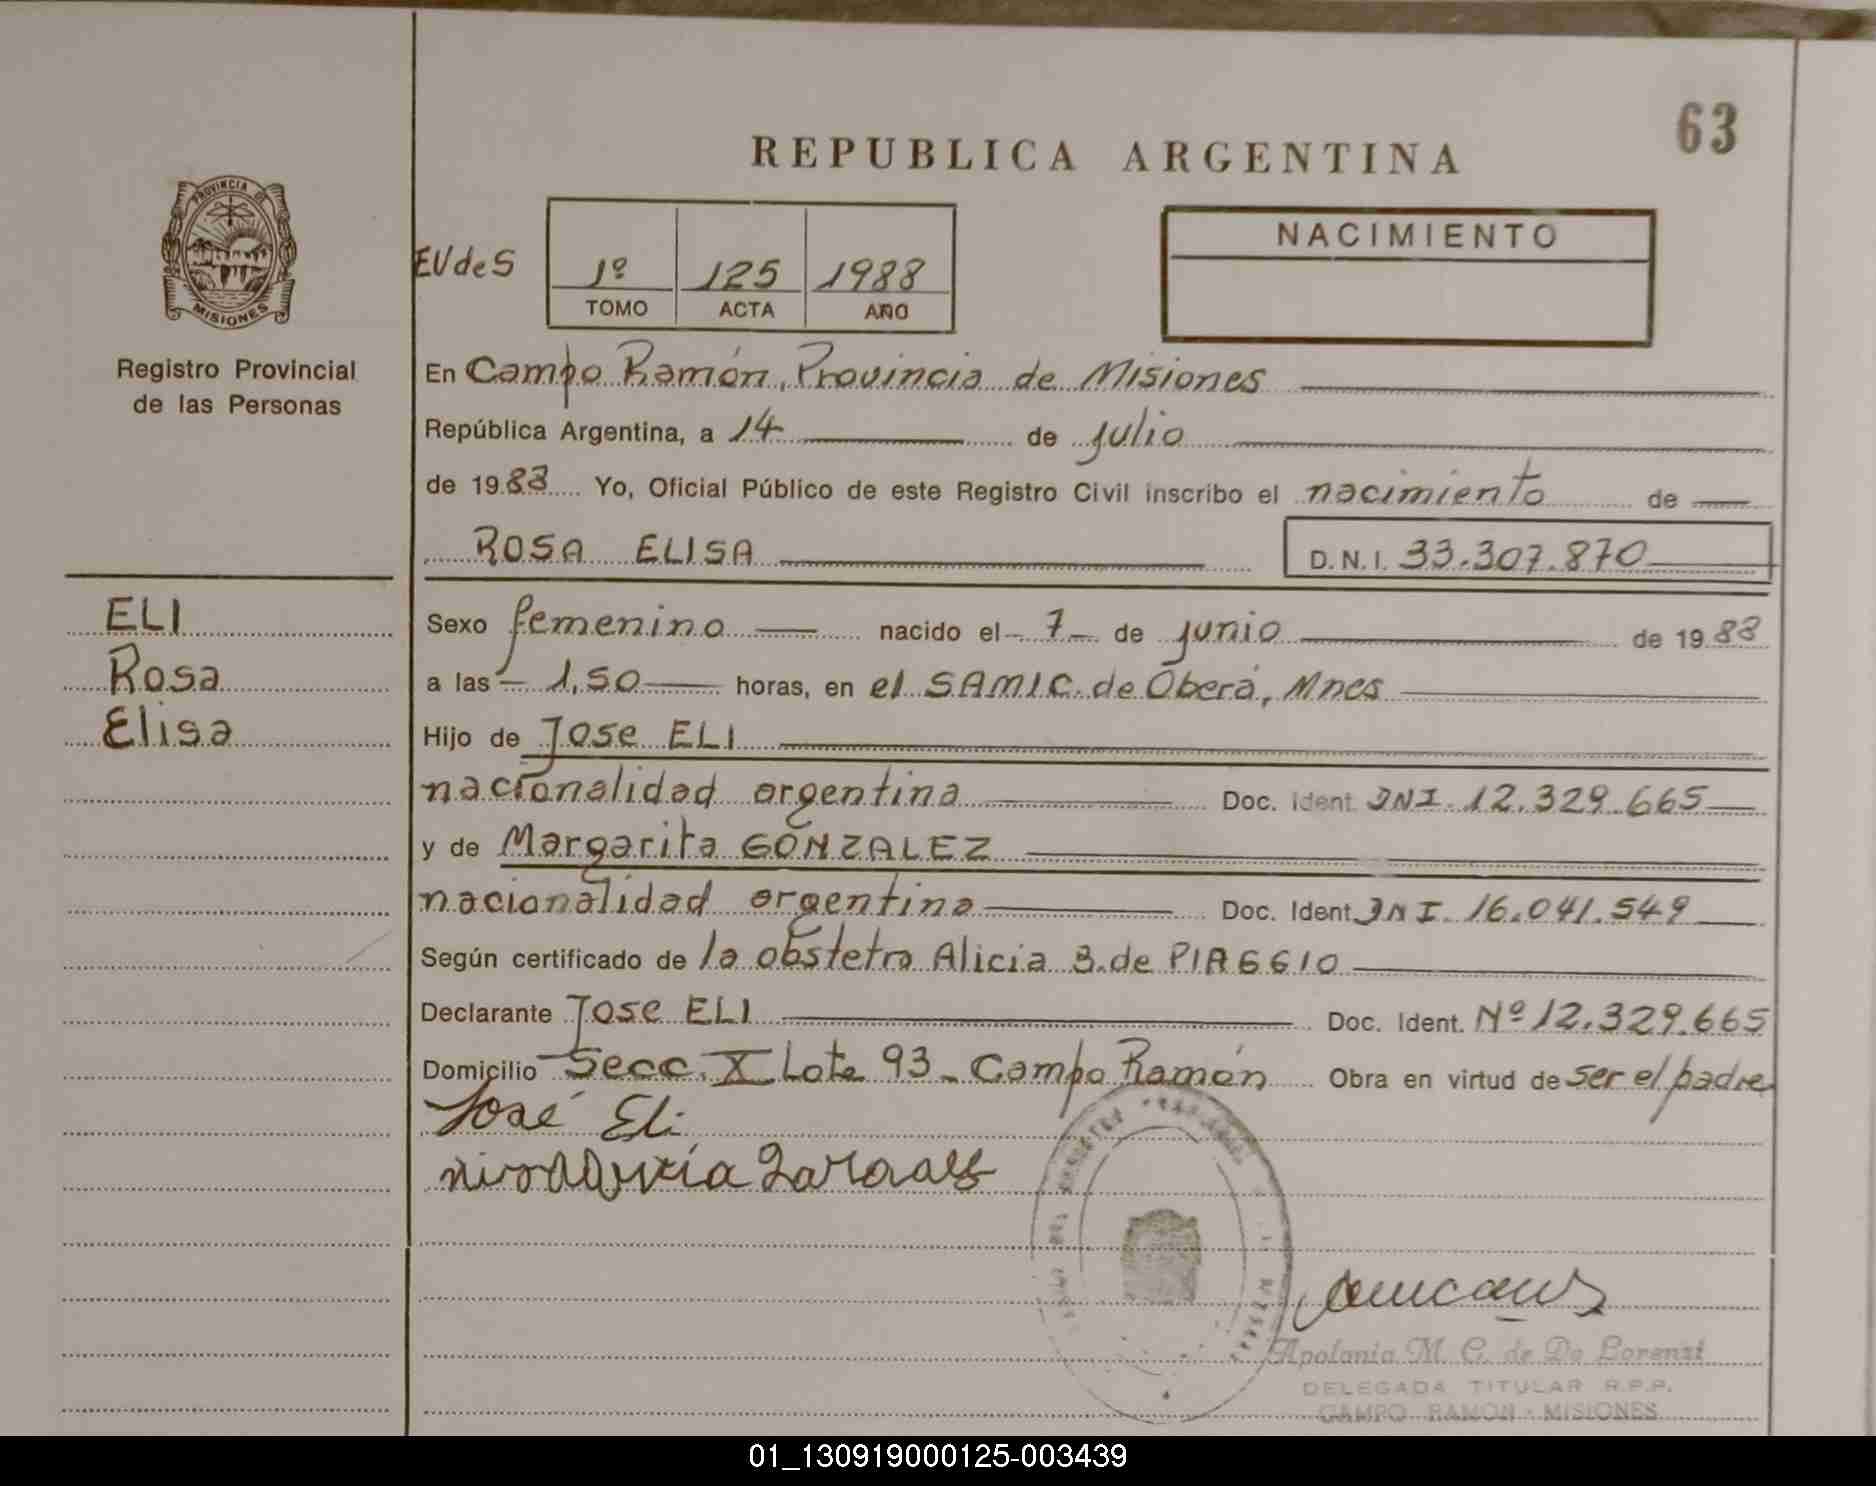 63
REPUBLICA ARGENTINA
PROVINCIA DE
MISIONES
Registro Provincial
de las Personas
EUdeS
1º 125 1988
TOMO ACTA AÑO
NACIMIENTO
En Campo Ramón, Provincia de Misiones
República Argentina, a 14 de julio
de 1988 Yo, Oficial Público de este Registro Civil inscribo el nacimiento de
ROSA ELISA D.N.I. 33.307.870
ELI
Rosa
Elisa
Sexo femenino nacido el 7 de junio de 1988
a las 1,50 horas, en el SAMIC. de Oberá, Mnes
Hijo de Jose ELI
nacionalidad argentina Doc. Ident. DNI. 12.329.665
y de Margarita GONZALEZ
nacionalidad argentina Doc. Ident. DNI. 16.041.549
Según certificado de la obstetra Alicia B. de PIAGGIO
Declarante Jose ELI Doc. Ident. Nº 12.329.665
Domicilio Secc. X Lote 93 - Campo Ramón Obra en virtud de ser el padre
José Eli
Apolonia M. C. de De Lorenzi
DELEGADA TITULAR R.P.P.
CAMPO RAMON - MISIONES
01_130919000125-003439